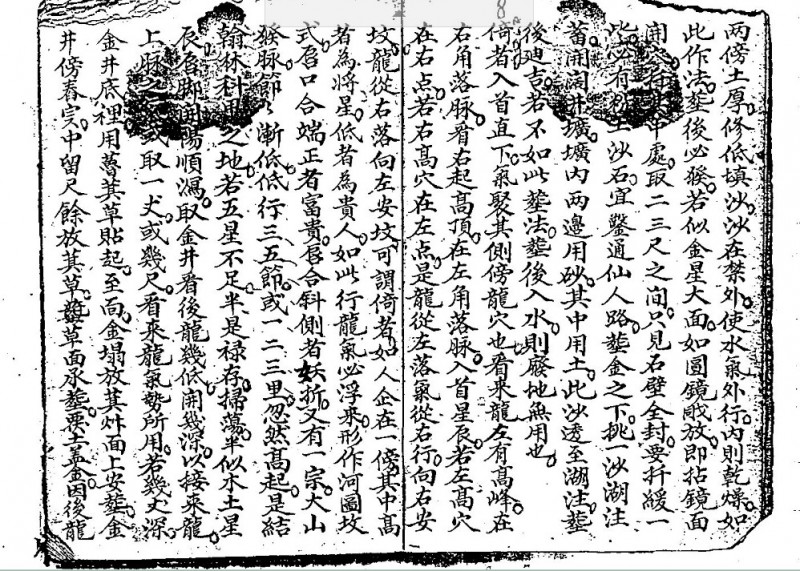 兩傍土厚修低填沙沙在禁外使水氣外行內則乾燥如
此作法葬後必發若似金星大面如圓鏡敞放即拈鏡面
開 中處取二三尺之間只見石壁全封要扦緩一
此必有 土沙石宜鑿通仙人路葬金之下挑一沙湖注
蓄開開井壙壙內兩邊用砂其中用土此沙透至湖注葬
後迪吉若不如此葬法葬後入水則廢地無用也
倚者入首直下氣聚其側傍龍穴也看來龍左有高峰在
右角落脉看右起高頂在左角落脉入首星辰若左高穴
在右点若右高穴在左点是龍從左落氣從右行向右安
坟龍從右落向左安坟可謂倚者如人企在一傍其中高
者為將星低者為貴人如此行龍氣必浮來形作河圖坟
式唇口合端正者富貴唇合斜側者妖折又有一宗大山
發脉節〻漸低低行三五節或一二三里忽然高起是結
翰林科甲之地若五星不足半是祿存掃蕩半似水土星
辰唇脚開陽順瀉取金井看後龍幾低開幾深以接來龍
上脉 或取一丈或幾尺看來龍氣勢所用若幾丈深
金井底裡用蓍萁草貼起至面金塌放其炷面上安葬金
井傍舂实中留尺餘放萁草 草面承葬浮土盖金因後龍